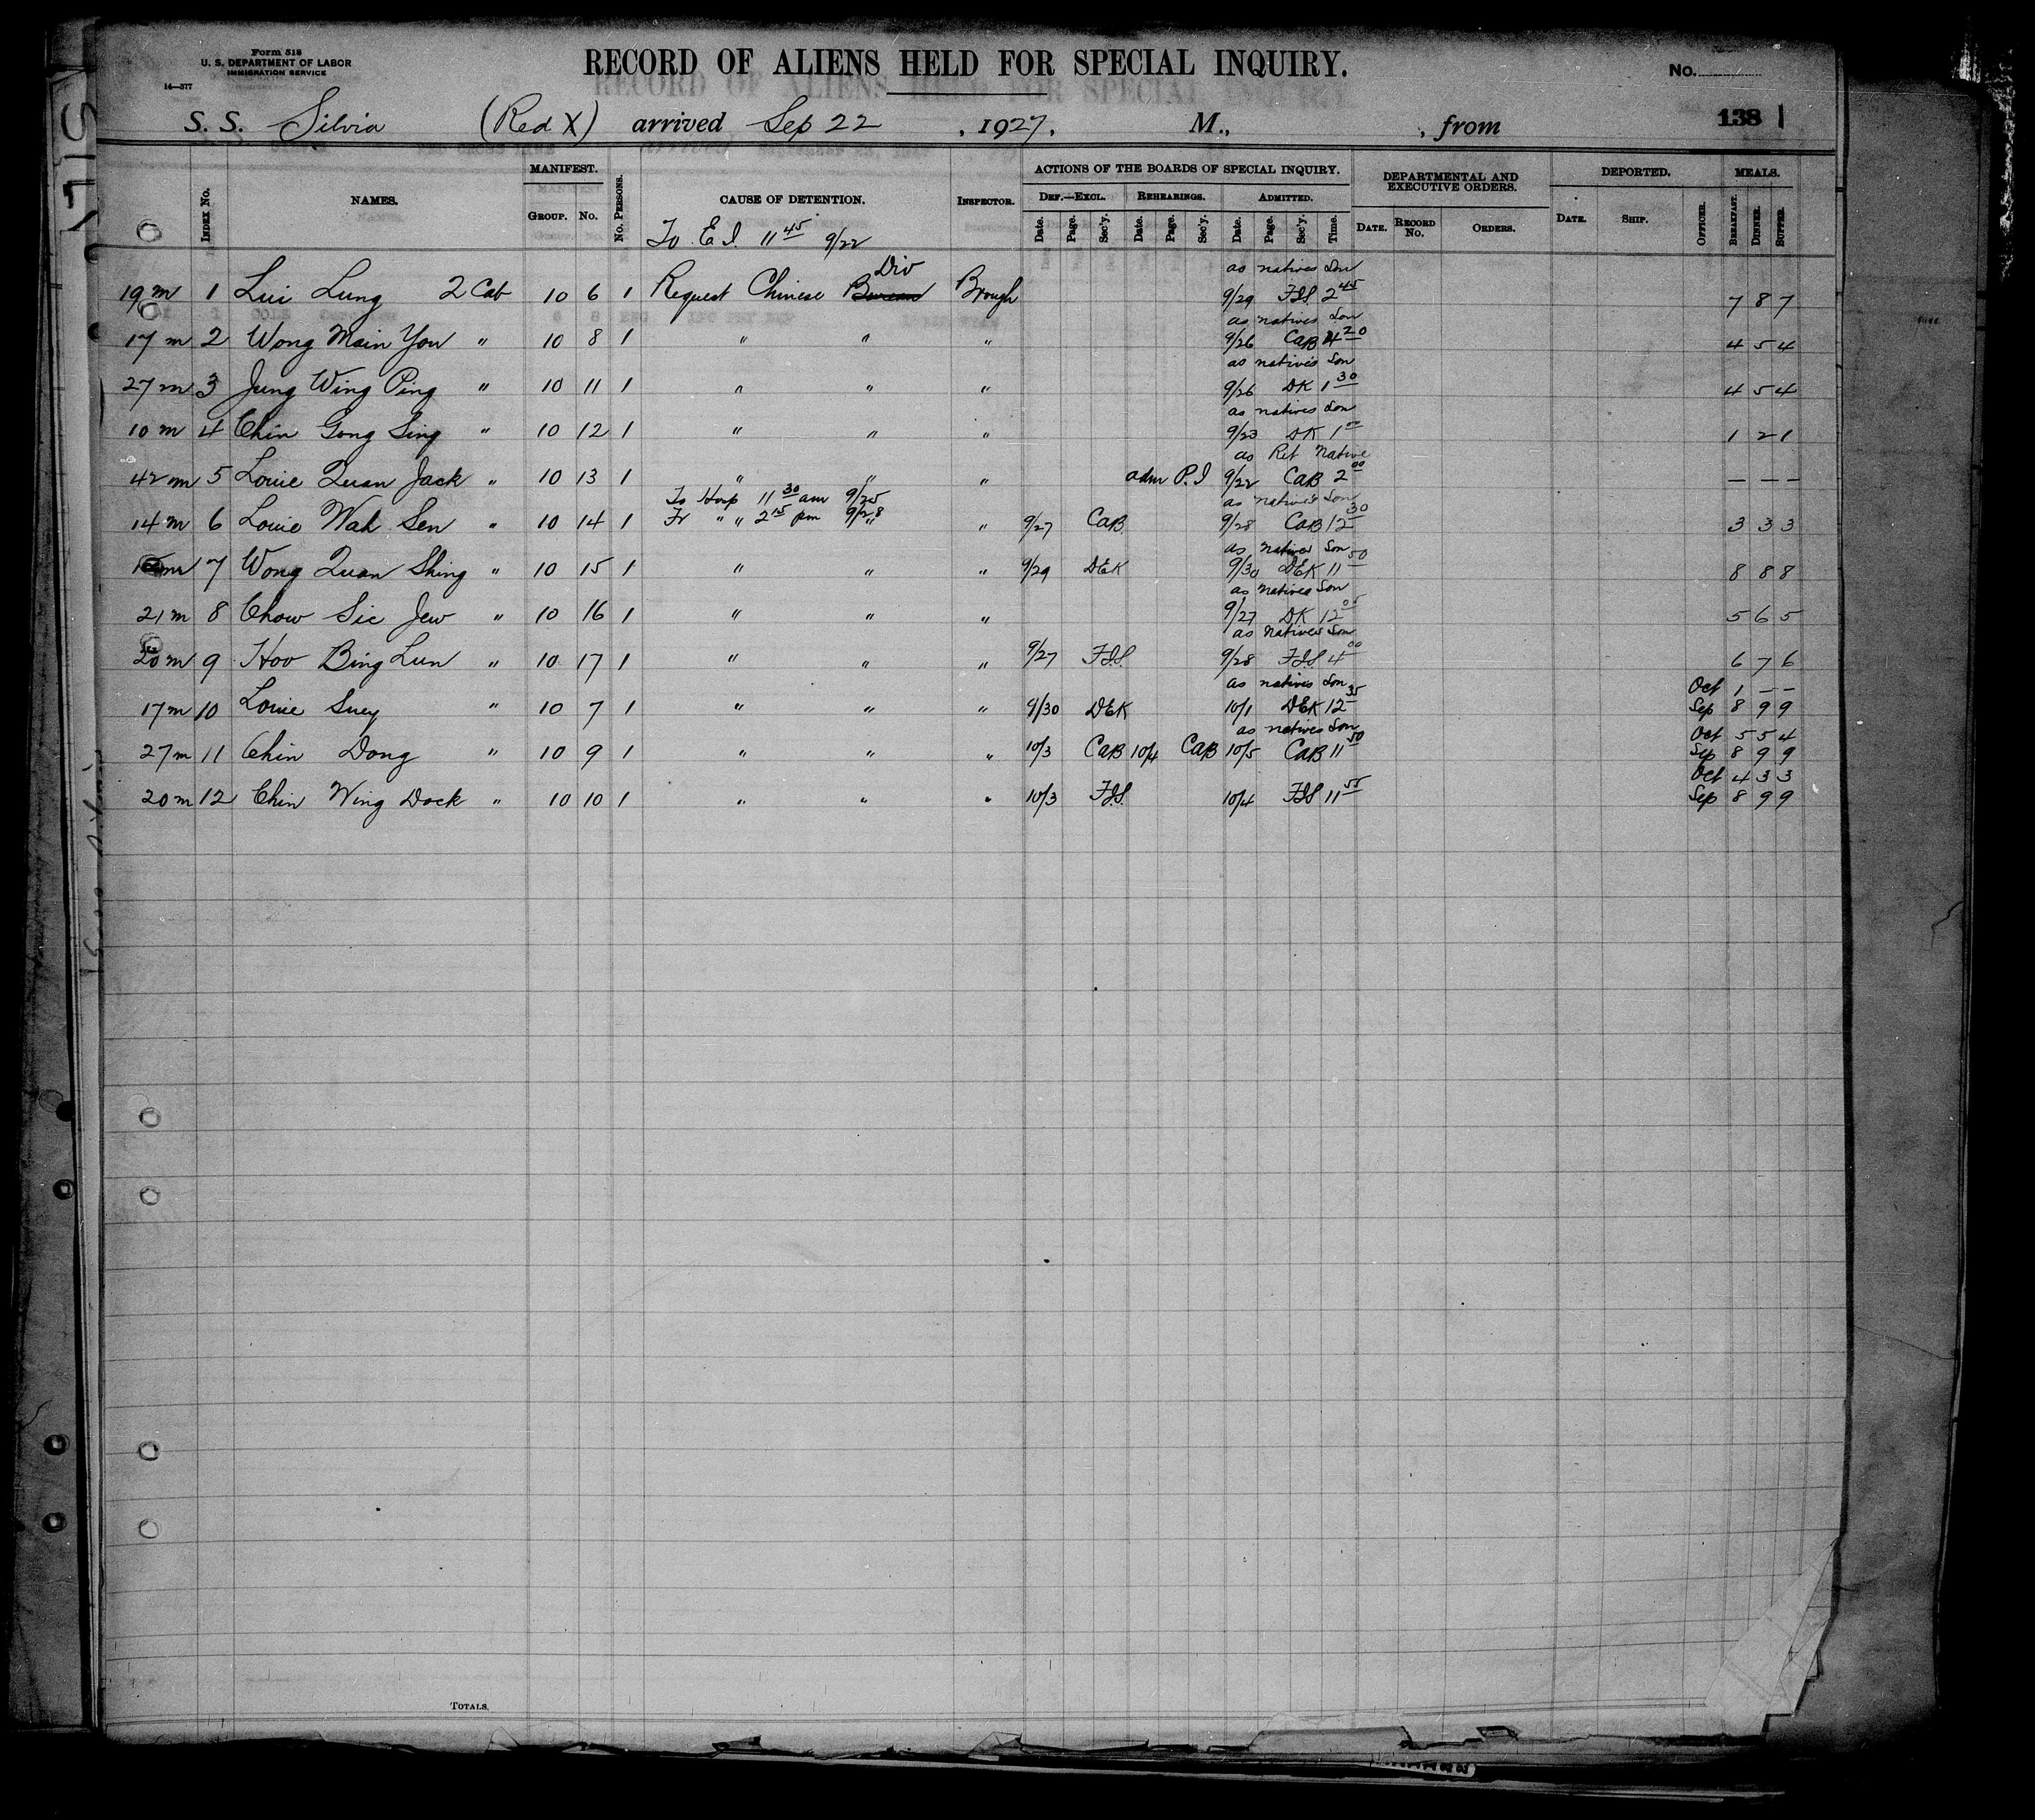 Form 518
U. S. DEPARTMENT OF LABOR
IMMIGRATION SERVICE
14—377
RECORD OF ALIENS HELD FOR SPECIAL INQUIRY.
No.
138
S. S. Silvia (Red X) arrived Sep 22, 1927, M., , from
INDEX No. NAMES. MANIFEST. GROUP. No. No. PERSONS. CAUSE OF DETENTION. INSPECTOR. ACTIONS OF THE BOARDS OF SPECIAL INQUIRY. DEF.—EXCL. Date. Page. Sec'y. REHEARINGS. Date. Page. Sec'y. ADMITTED. Date. Page. Sec'y. Time. DEPARTMENTAL AND EXECUTIVE ORDERS. DATE. RECORD No. ORDERS. DEPORTED. DATE. SHIP. OFFICER. MEALS. BREAKFAST. DINNER. SUPPER.
To E. I. 11 45 9/22
Div as natives Son
19 m 1 Lui Lung 2 Cab 10 6 1 Request Chinese Bureau Brough 9/29 FJS 2 45 7 8 7
as natives Son
17 m 2 Wong Main You " 10 8 1 " " " 9/26 CAB 4 20 4 5 4
as natives Son
27 m 3 Jung Wing Ping " 10 11 1 " " " 9/26 DK 1 30 4 5 4
as natives Son
10 m 4 Chin Gong Sing " 10 12 1 " " " 9/23 DK 1 00 1 2 1
as Ret Native
42 m 5 Louie Quan Jack " 10 13 1 " " " adm P.I 9/22 CAB 2 00 — — —
To Hosp 11 30 am 9/25 as natives Son
14 m 6 Louie Wah Sen " 10 14 1 Fr " " 2 15 pm 9/28 " 9/27 CAB 9/28 CAB 12 30 3 3 3
as natives Son
m 7 Wong Quan Shing " 10 15 1 " " " 9/29 DEK 9/30 DEK 11 50 8 8 8
as natives Son
21 m 8 Chow Sic Jew " 10 16 1 " " " 9/27 DK 12 05 5 6 5
as natives Son
20 m 9 Hoo Bing Lun " 10 17 1 " " " 9/27 FJS. 9/28 FJS 4 00 6 7 6
as natives Son Oct 1 — —
17 m 10 Louie Suey " 10 7 1 " " " 9/30 DEK 10/1 DEK 12 35 Sep 8 9 9
as natives Son Oct 5 5 4
27 m 11 Chin Dong " 10 9 1 " " " 10/3 CAB 10/4 CAB 10/5 CAB 11 50 Sep 8 9 9
Oct 4 3 3
20 m 12 Chin Wing Dock " 10 10 1 " " " 10/3 FJS. 10/4 FJS 11 55 Sep 8 9 9
TOTALS.